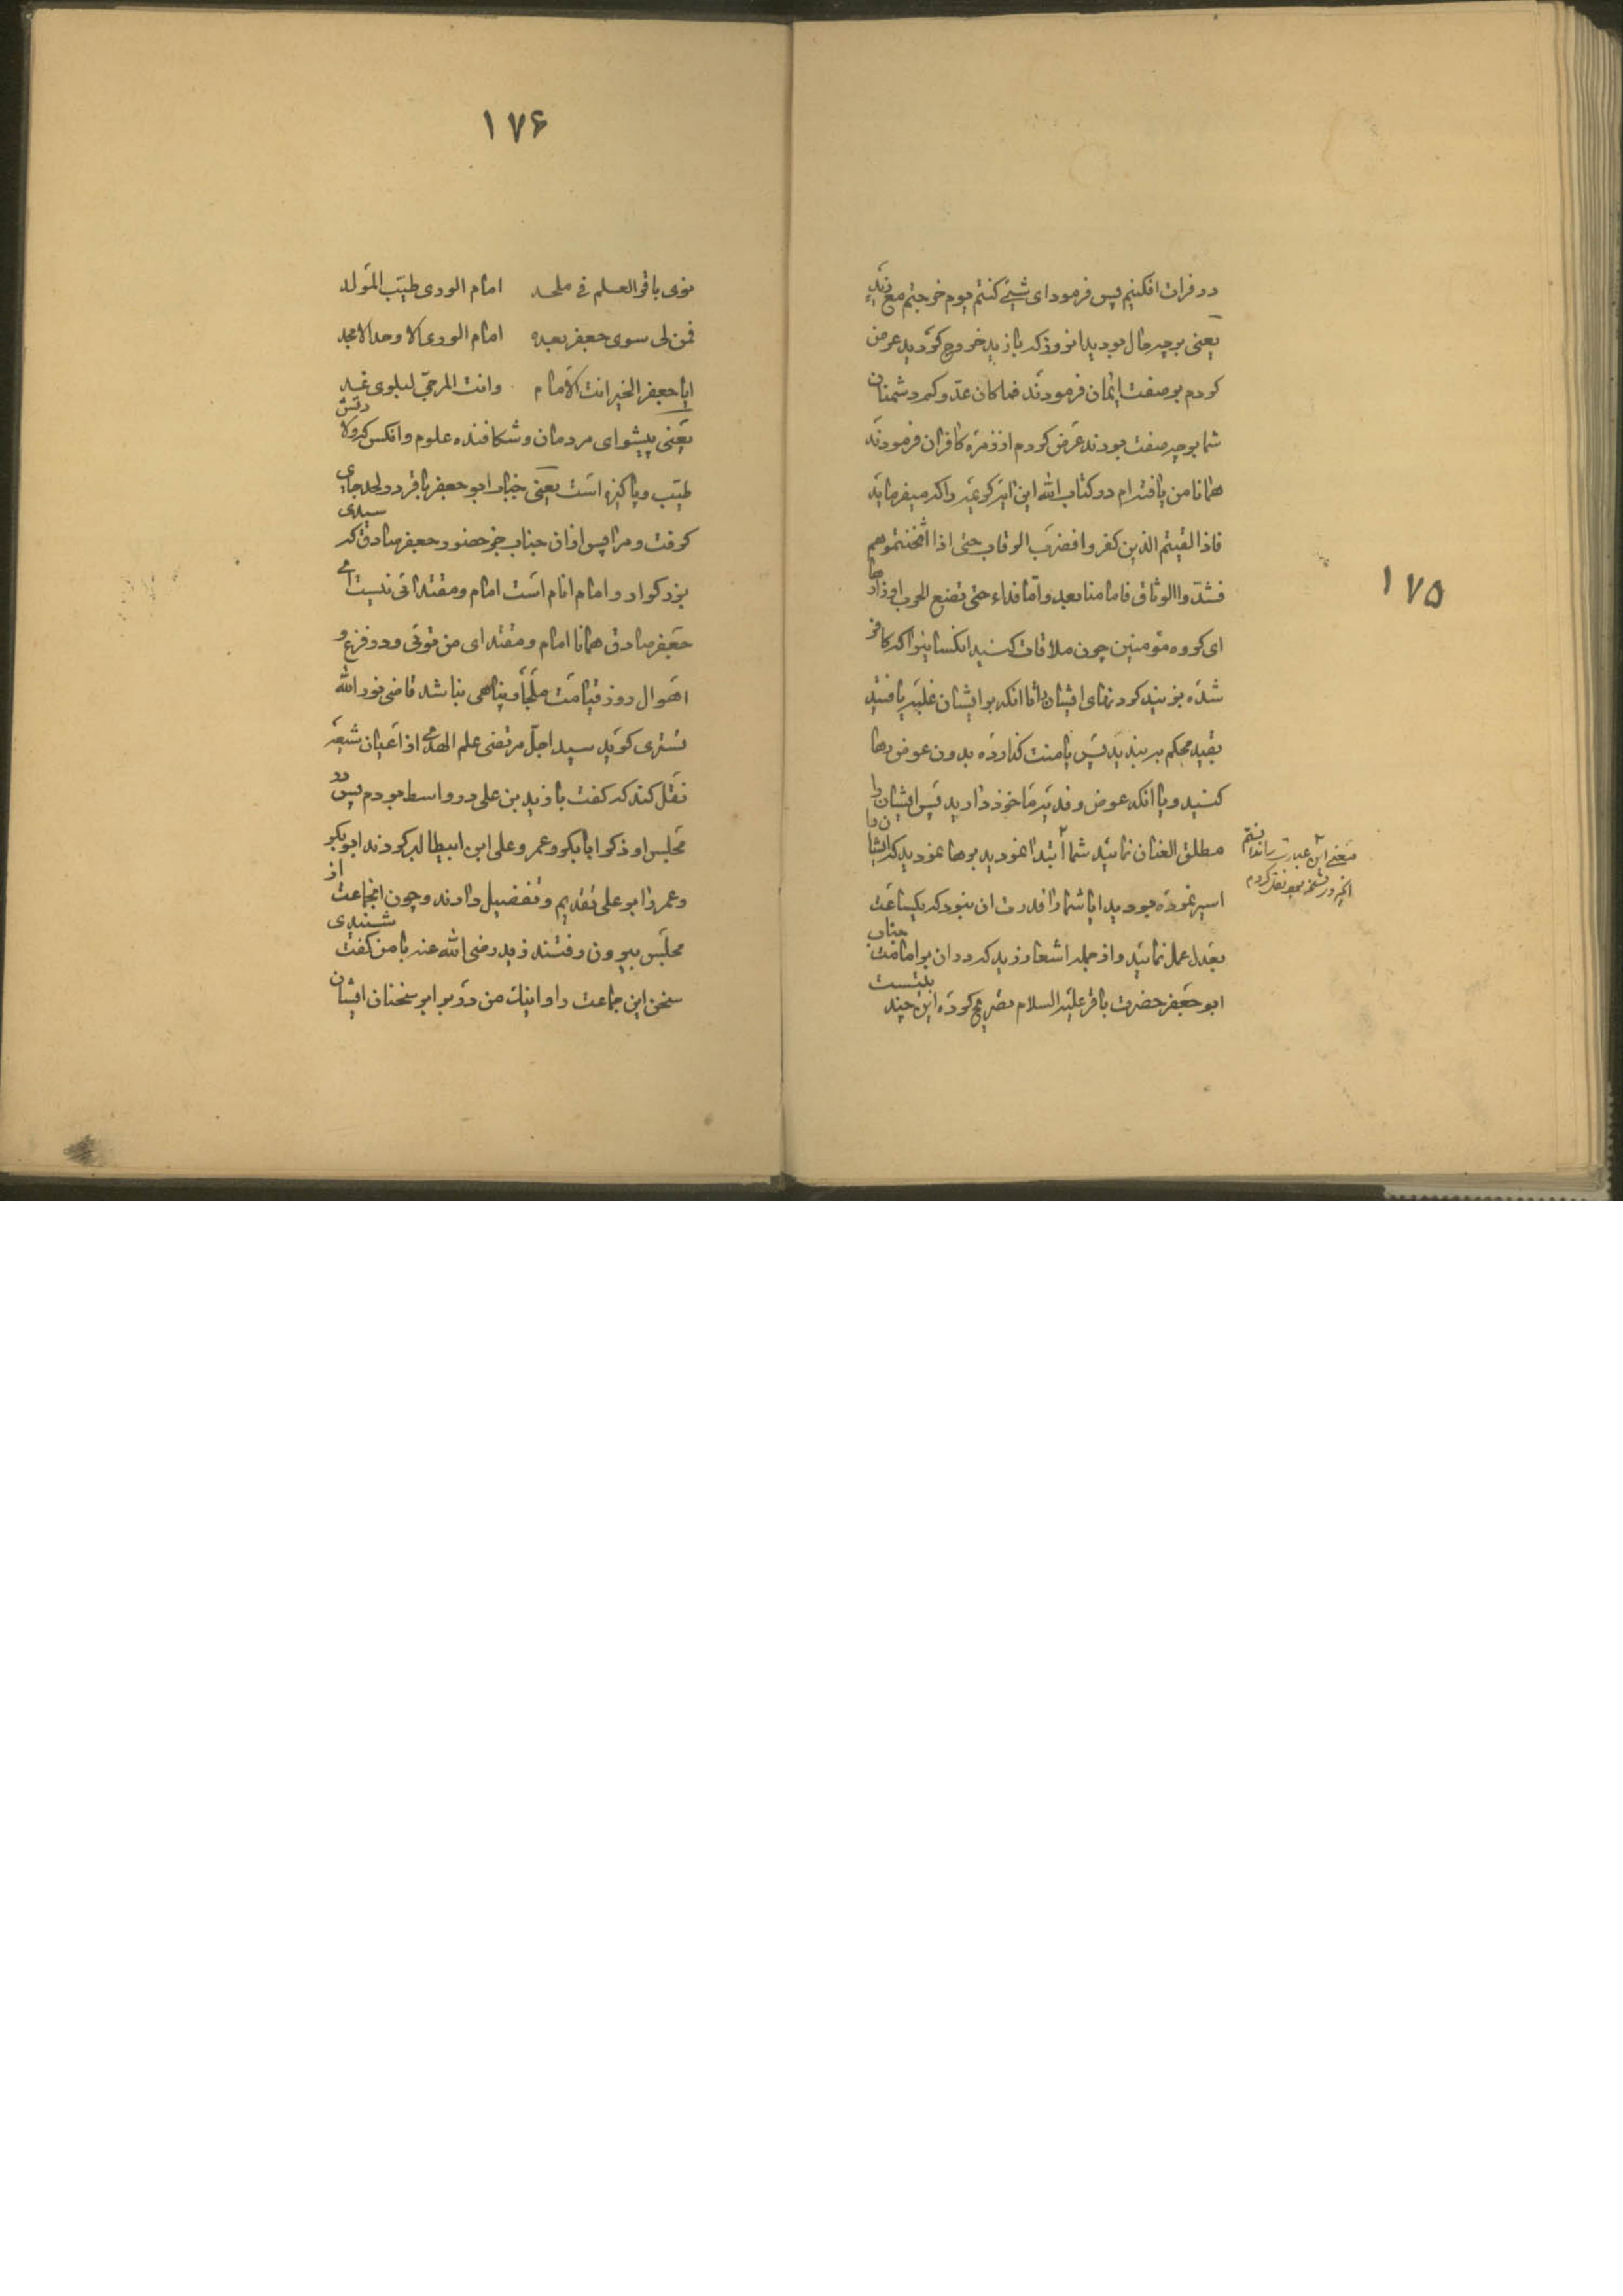 ۱۷۵
در فرات افکنیم پس فرمود ای شیئ کنتم یوم خرجتم مع زید
یعنی بر چه حال بودید انروز که با زید خروج کردید عرض
کردم بر صفت ایمان فرمودند فما کان عدوکم دشمنان
شما بر چه صفت بودند عرض کردم از زمره کافران فرمودند
همانا من یافته‌ام در کتاب الله این ایه کریمه را که میفرماید
فاذا لقیتم الذین کفروا فضرب الرقاب حتی اذا اثخنتموهم
فشدوا الوثاق فاما منا بعد واما فداء حتی تضع الحرب اوزارها
ای کروه مؤمنین چون ملاقات کنید انکسانیرا که کافر
شده بزنید کردنهای ایشان تا انکه بر ایشان غلبه یافتید
بقید محکم بربندید پس یا منت کذارده بدون عوض رها
کنید ویا انکه عوض و فدیه ماخوذ دارید پس ایشان را
مطلق العنان نمائید شما ابتدا نمودید برها نمودید کسانیکه
اسیر نموده بودید ایا شما را قدرت ان نبود که یکساعت
بعدل عمل نمائید واز جمله اشعار زید که در ان بر امامت جناب
ابو جعفر حضرت باقر علیه السلام تصریح کرده این چند بیتست
معنی این عبارت را ندانستم
انچه در نسخه بود نقل کردم
۱۷۶
ثوی باقر العلم فی ملحد امام الوری طیب المولد
فمن لی سوی جعفر بعده امام الوری الاوحد الامجد
ایا جعفر الخیر انت الامام وانت المرجی لبلوی غد
یعنی پیشوای مردمان و شکافنده علوم وانکس که ولادتش
طیب و پاکیزه است یعنی جناب ابو جعفر باقر در لحد جای
کرفت و مرا پس از ان جناب جز حضور جعفر صادق که سیدی
بزرکوار و امام انام است امام و مقتدائی نیست ای
جعفر صادق همانا امام و مقتدای من توئی و در فزع و
اهوال روز قیامت ملجأ و پناهی نباشد قاضی نور الله
تستری کوید سید اجل مرتضی علم الهدی از اعیان شیعه
نقل کند که کفت با زید بن علی در واسط بودم پس در
مجلس او ذکر ابابکر و عمر و علی ابن ابیطالب کردند ابوبکر
و عمر را بر علی تقدیم و تفضیل دادند و چون انجماعت از
مجلس بیرون رفتند زید رضی الله عنه با من کفت شنیدی
سخن این جماعت را و اینک من در برابر سخنان ایشان